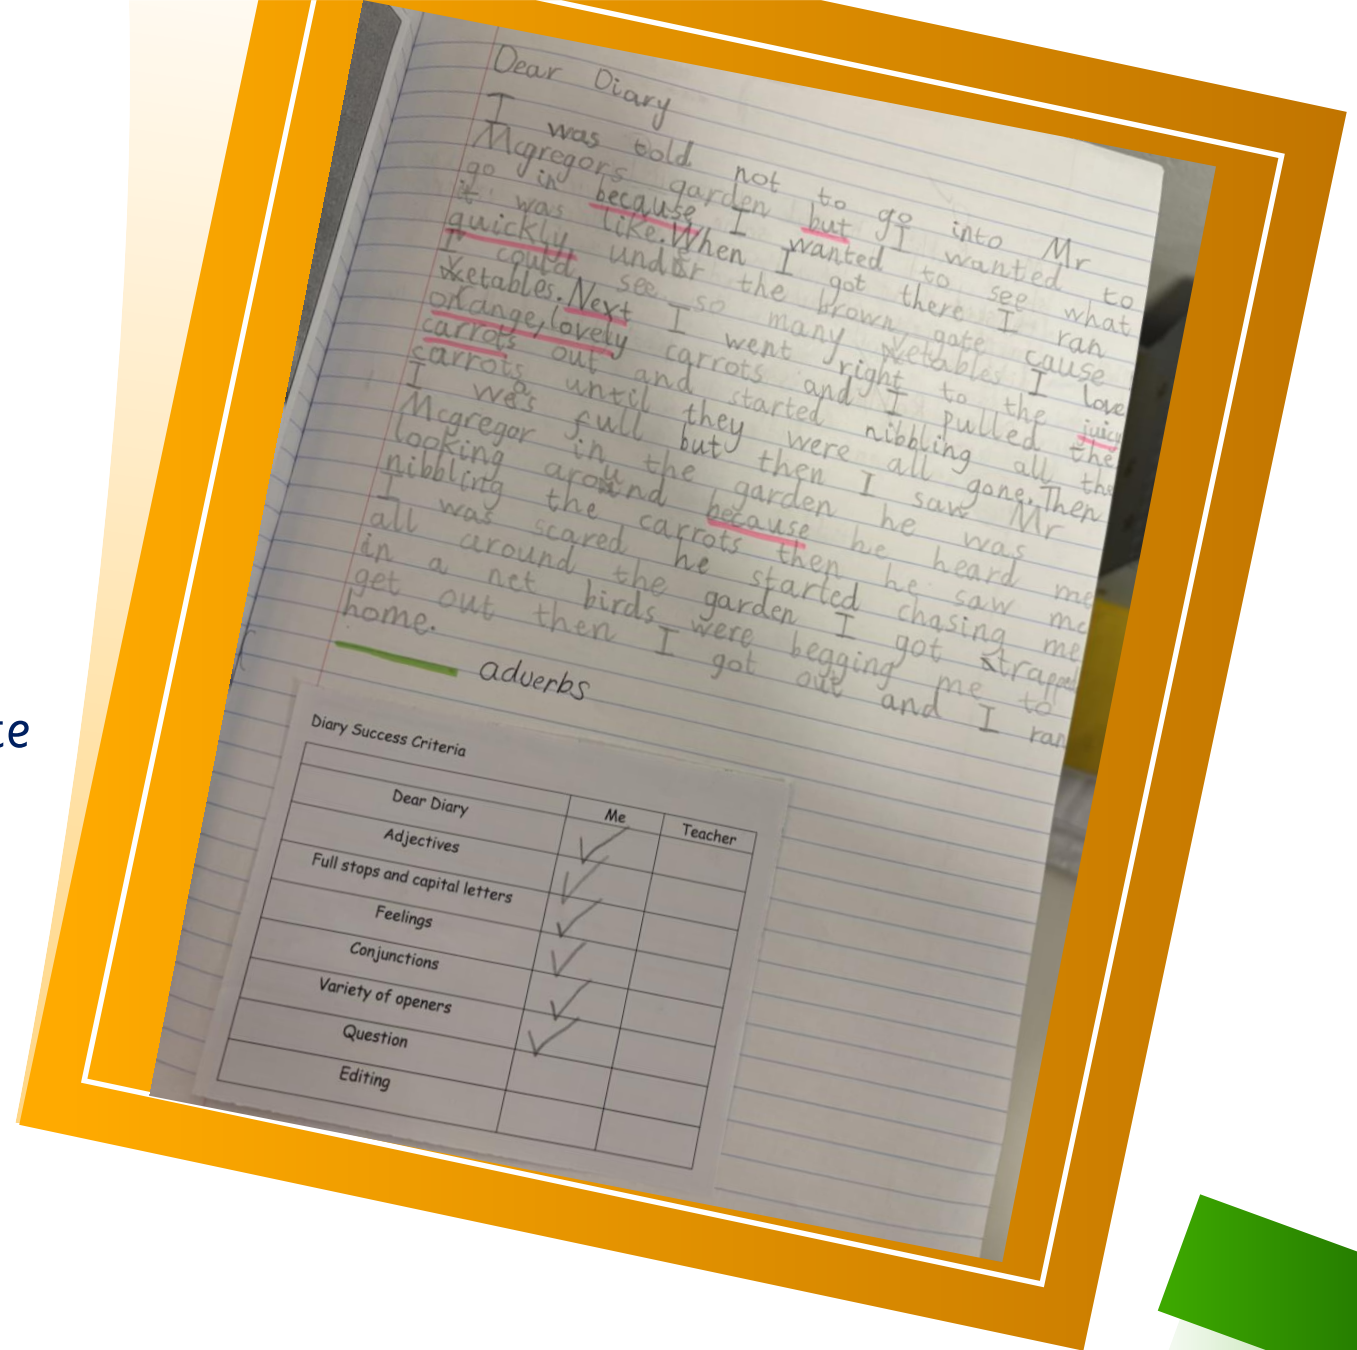 Dear Diary
I was told not to go into Mr
Mcgregors garden but I wanted to
go in because I wanted to see what
it was like. When I got there I ran
quickly under the brown gate cause
I could see so many vetables I love
vetables. Next I went right to the juicy
orange, lovely carrots and I pulled the
carrots out and started nibbling all the
carrots until they were all gone. Then
I was full but then I saw Mr
Mcgregor in the garden he was
looking around because he heard me
nibbling the carrots then he saw me
I was scared he started chasing me
all around the garden I got trapped
in a net birds were begging me to
get out then I got out and I ran
home.
adverbs
Diary Success Criteria
Me Teacher
Dear Diary
Adjectives
Full stops and capital letters
Feelings
Conjunctions
Variety of openers
Question
Editing